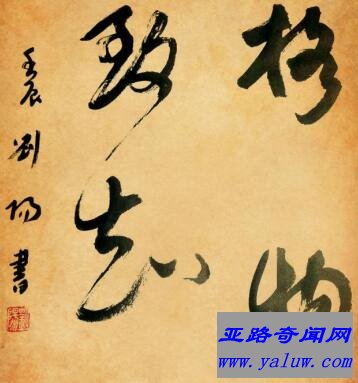 格物
致知
壬辰刘阳书
亚路奇闻网
www.yaluw.com